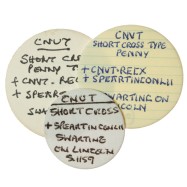 CNVT
SHORT CROSS
PENNY
+ CNVT · RE
+ SPEART
CNVT
SHORT CROSS TYPE
PENNY
+ CNVT · RECX
+ SPEARTINCONLII
SWARTING ON
LINCOLN
CNUT
SHORT CROSS
+ SPEARTINCONLII
SWARTING
ON LINCOLN
S1159